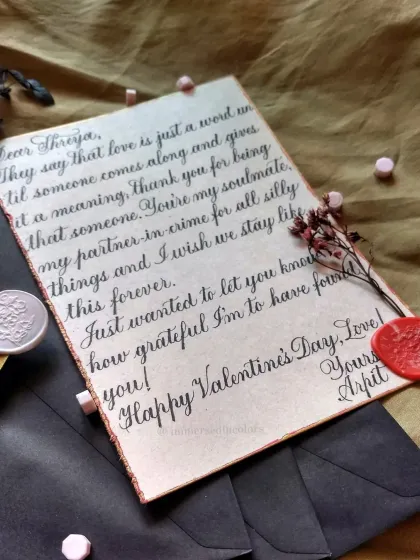 Dear Threya,
They say that love is just a word un
til someone comes along and gives
it a meaning. Thank you for being
that someone. You're my soulmate,
my partner-in-crime for all silly
things and I wish we stay like
this forever.
Just wanted to let you know
how grateful I'm to have found
you!
Happy Valentine's Day, Love!
Yours
Arpit